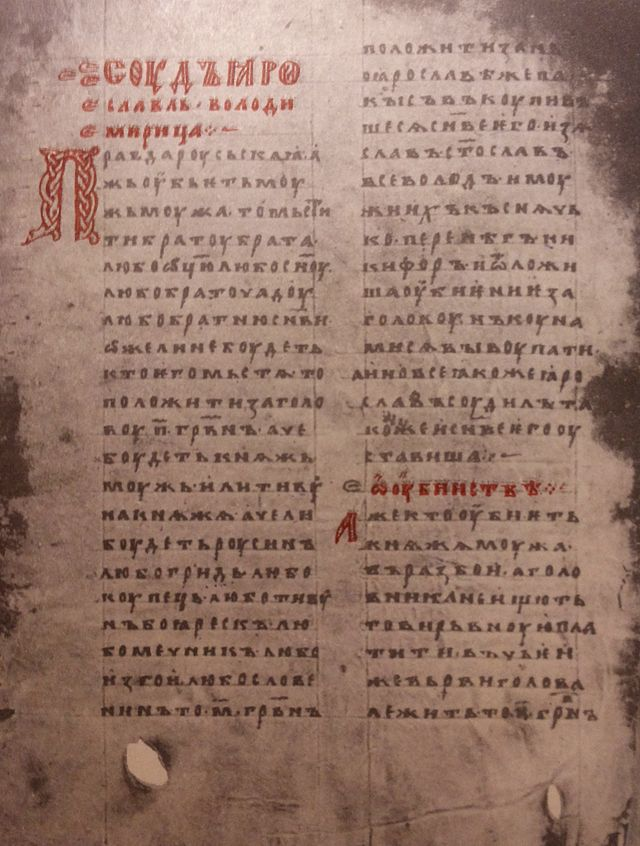 СОУДЪ ꙖРО
СЛАВЛЬ · ВОЛОДИ
МИРИЦА ⁘~
Правда роусьскаꙗ · а
жь оубьѥть моу
жь моужа · то мьстити
ти братоу брата ·
любо ѿцю любо сн҃оу ·
любо братоу чадоу ·
любо братню сн҃ви ·
ѡже ли не боудеть
кто ѥго мьстѧ то
положити за голо
воу · п҃ · грвнъ · аче
боудеть кнѧжь
моужь · или тивоу
на кнѧжѧ · аче ли
боудеть роусинъ
любо гридь · любо
коупець · любо тивоу
нъ боꙗрескъ · лю
бо мечникъ · любо
изгои · любо слове
нинъ · то · м҃ · грвнъ
положити за нь ·
по ꙗрославѣ же па
кы съвъкоупивъ
шесѧ сн҃ве ѥго · изѧ
славъ · ст҃ославъ ·
всеволодъ · и моу
жи ихъ · къснѧчь
ко · перенѣгъ · ни
кифоръ · и ѿложи
ша оубиѥниѥ за
головоу · нъ коуна
ми сѧ выкоупати ·
а ино все ꙗкоже ꙗро
славъ соудилъ · та
коже и сн҃ве ѥго оу
ставиша ⁘~
Ѡ ОУБИИСТВѢ ⁘
Аже кто оубиѥть
кнѧжѧ моужа ·
въ разбои · а голо
вника не ищють
то вирьвноую пла
тити · въ чьѥи
же вьрви голова
лежить то · п҃ · грвнъ